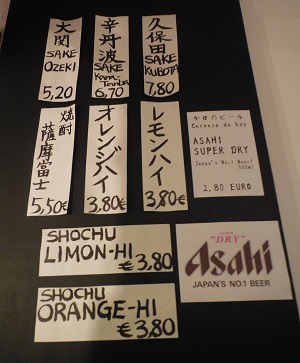 大関
SAKE
OZEKI
5,20
辛丹波
SAKE
Kara-Tamba
6,70
久保田
SAKE
KUBOTA
7,80
焼酎
薩摩富士
5,50€
オレンジハイ
3,80€
レモンハイ
3,80€
今日のビール
Cerveza de hoy
ASAHI
SUPER DRY
Japan's No.1 Beer!
2.80 EURO
SHOCHU
LIMON-HI
€3,80
SHOCHU
ORANGE-HI
€3,80
SUPER
"DRY"
Asahi
JAPAN'S NO.1 BEER